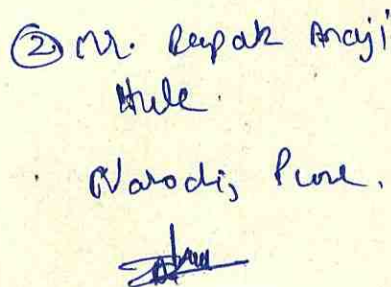 ② Mr. Deepak Anaji
Hule.
Narodi, Pune.